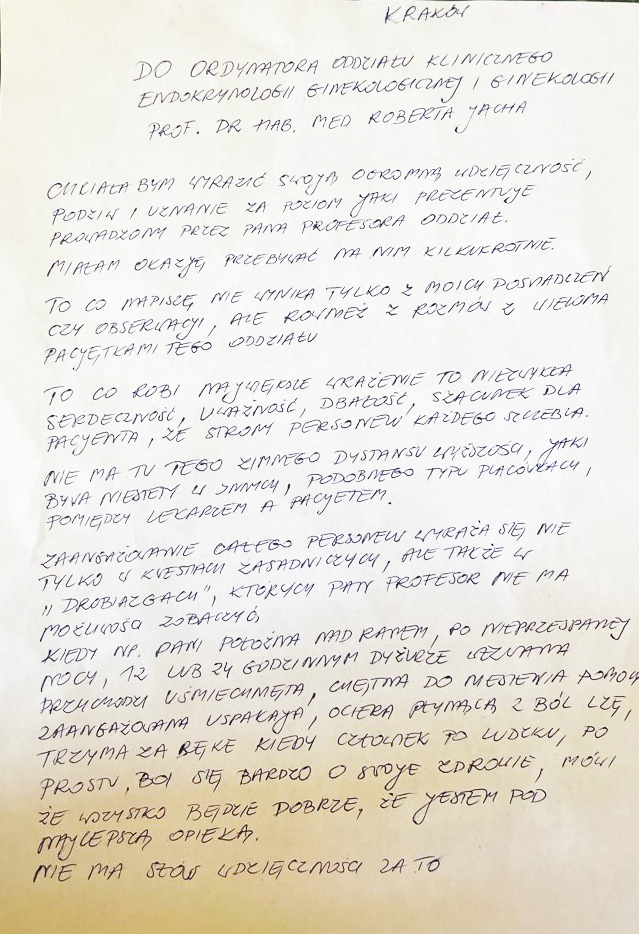 KRAKÓW
DO ORDYNATORA ODDZIAŁU KLINICZNEGO
ENDOKRYNOLOGII GINEKOLOGICZNEJ I GINEKOLOGII
PROF. DR HAB. MED ROBERTA JACHA
CHCIAŁA BYM WYRAZIĆ SWOJĄ OGROMNĄ WDZIĘCZNOŚĆ,
PODZIW I UZNANIE ZA POZIOM JAKI PREZENTUJE
PROWADZONY PRZEZ PANA PROFESORA ODDZIAŁ.
MIAŁAM OKAZJĘ PRZEBYWAĆ NA NIM KILKUKROTNIE.
TO CO NAPISZĘ NIE WYNIKA TYLKO Z MOICH DOŚWIADCZEŃ
CZY OBSERWACJI, ALE RÓWNIEŻ Z ROZMÓW Z WIELOMA
PACJĘTKAMI TEGO ODDZIAŁU
TO CO ROBI NAJWIĘKSZE WRAŻENIE TO NIEZWYKŁA
SERDECZNOŚĆ, UWAŻNOŚĆ, DBAŁOŚĆ, SZACUNEK DLA
PACJENTA, ZE STRONY PERSONELU KAŻDEGO SZCZEBLA.
NIE MA TU TEGO ZIMNEGO DYSTANSU WYŻSZOŚCI, JAKI
BYWA NIESTETY W INNYCH, PODOBNEGO TYPU PLACÓWKACH,
POMIĘDZY LEKARZEM A PACJETEM.
ZAANGAŻOWANIE CAŁEGO PERSONELU WYRAŻA SIĘ NIE
TYLKO W KWESTIACH ZASADNICZYCH, ALE TAKŻE W
"DROBIAZGACH", KTÓRYCH PAN PROFESOR NIE MA
MOŻLIWOŚCI ZOBACZYĆ,
KIEDY NP. PANI POŁOŻNA NAD RANEM, PO NIEPRZESPANEJ
NOCY, 12 LUB 24 GODZINNYM DYŻURZE WEZWANA
PRZYCHODZI UŚMIECHNIĘTA, CHĘTNA DO NIESIENIA POMOCY
ZAANGAŻOWANA USPAKAJA, OCIERA PŁYNĄCĄ Z BÓL ŁZĘ,
TRZYMA ZA RĘKE KIEDY CZŁOWIEK PO LUDZKU, PO
PROSTU, BOI SIĘ BARDZO O SWOJE ZDROWIE, MÓWI
ŻE WSZYSTKO BĘDZIE DOBRZE, ŻE JESTEM POD
NAJLEPSZĄ OPIEKĄ.
NIE MA SŁÓW WDZIĘCZNOŚCI ZA TO